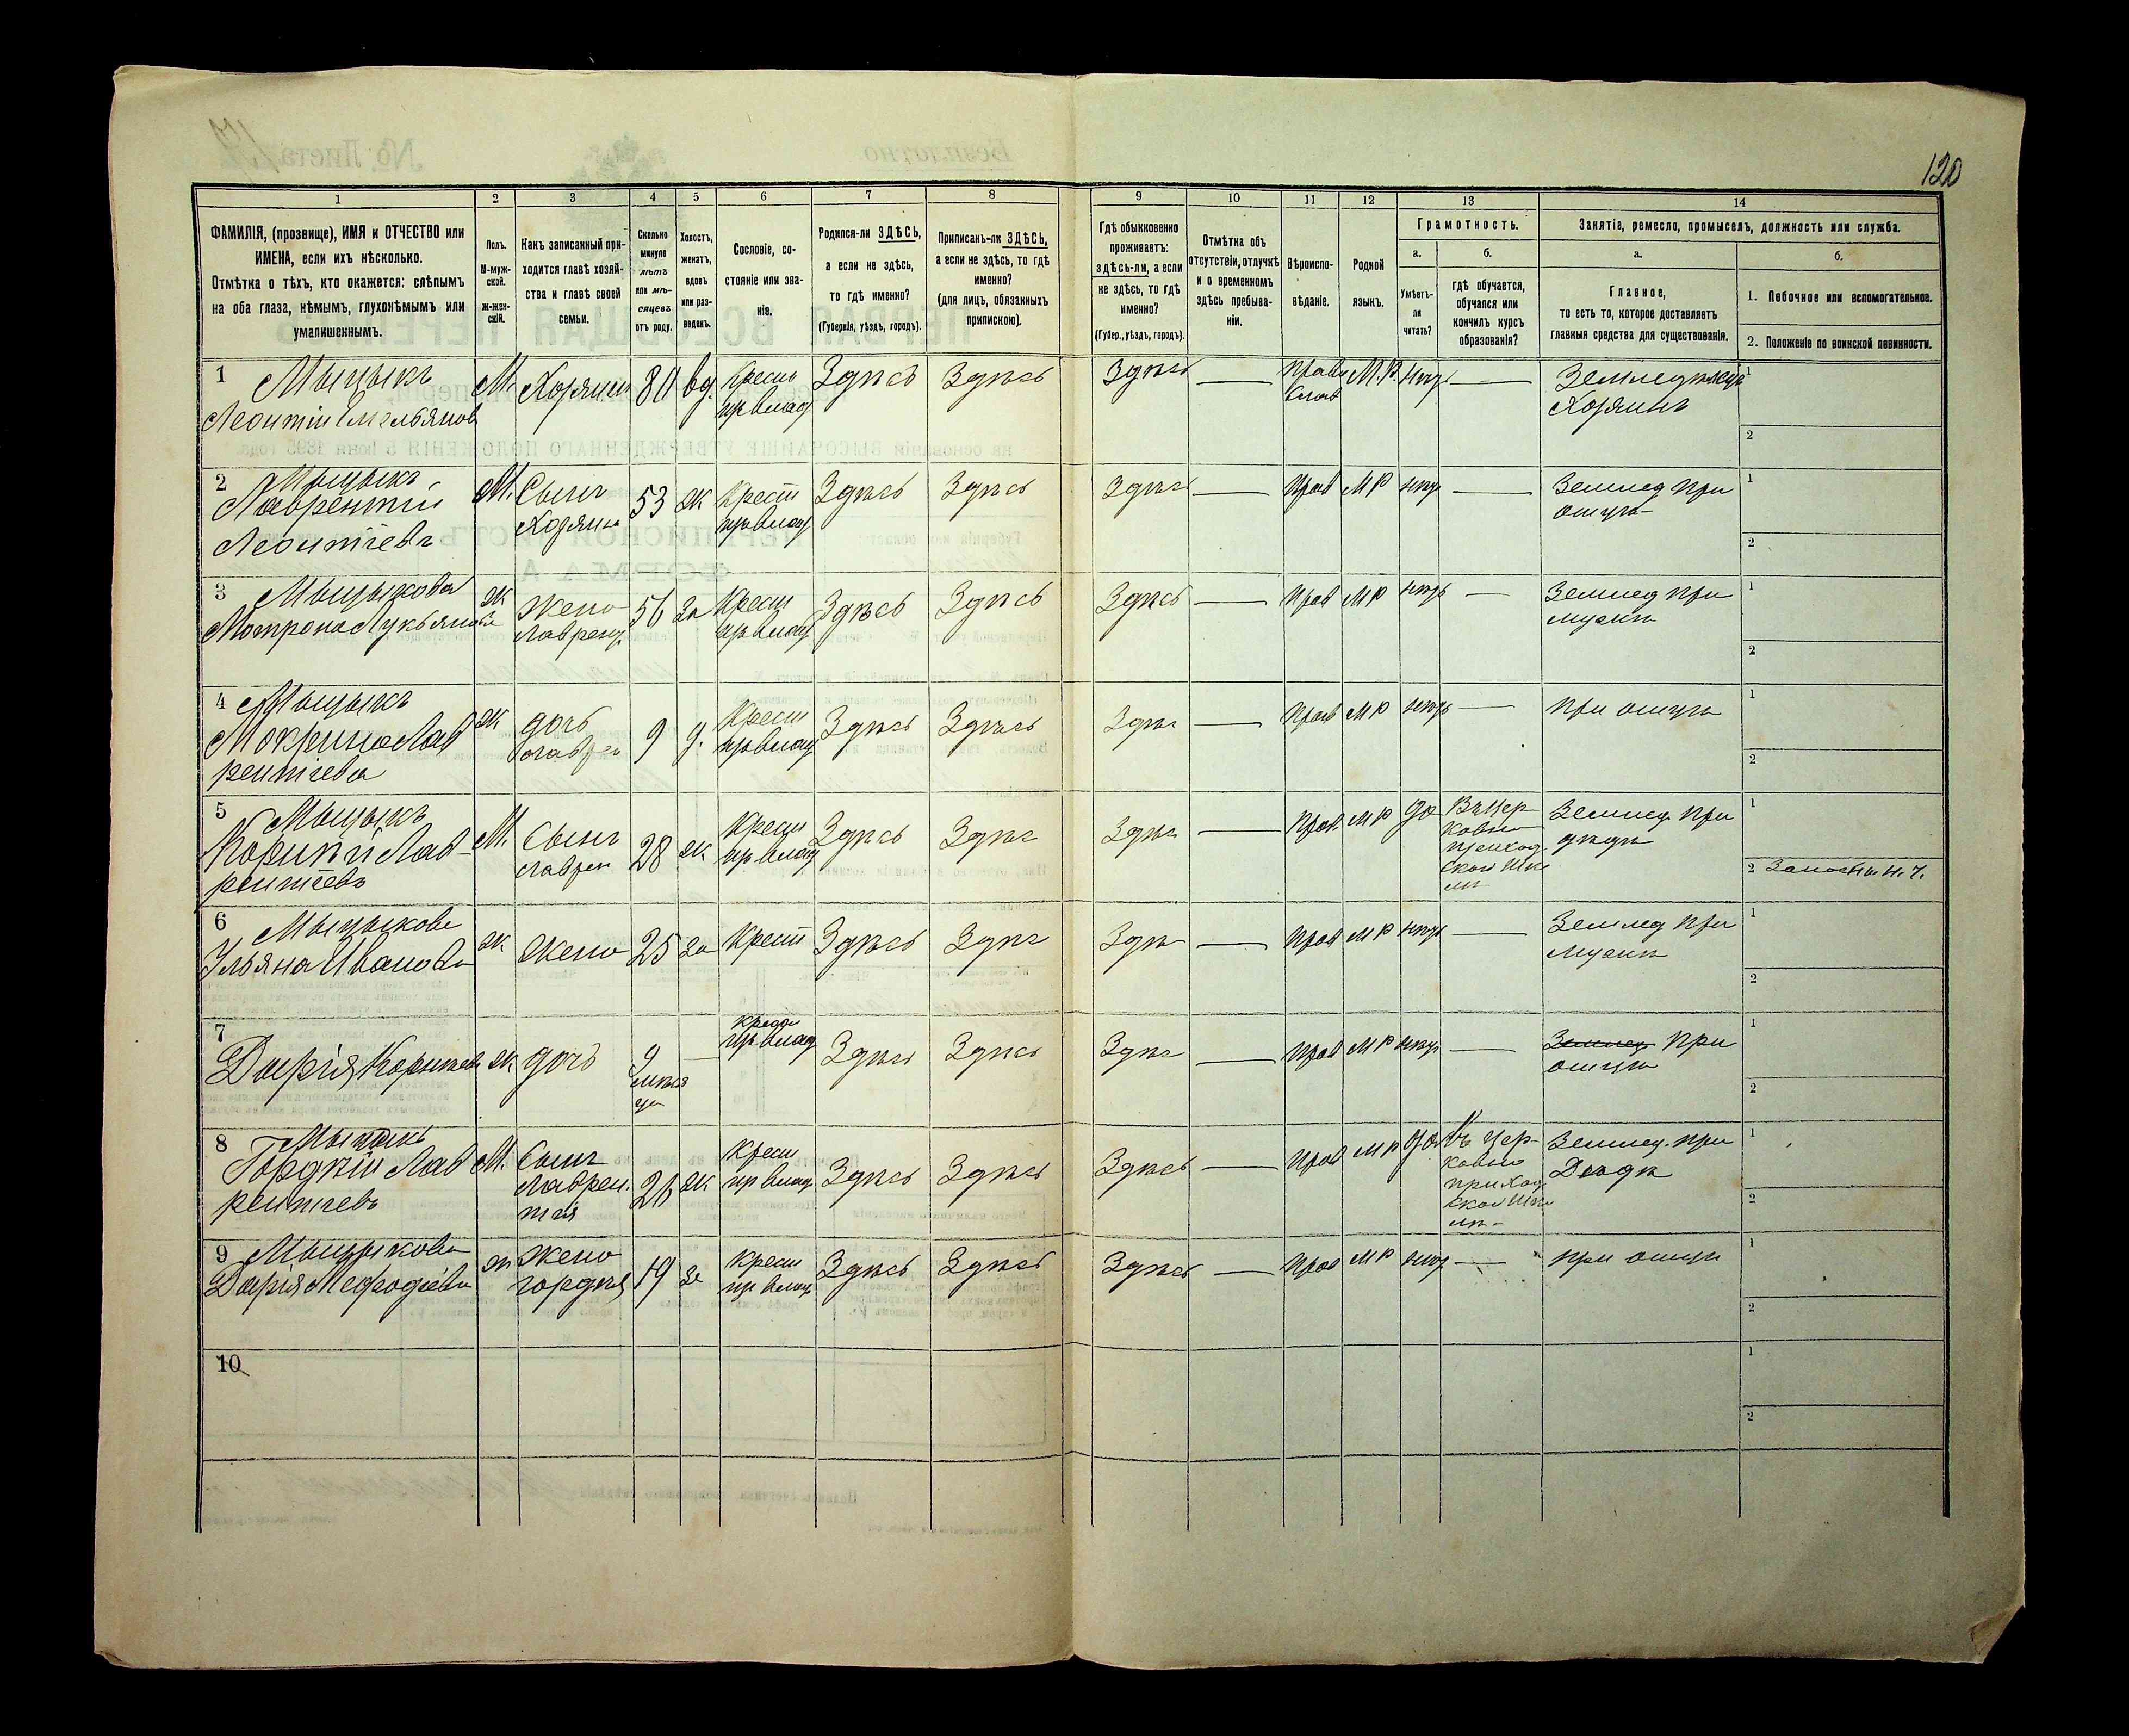 120
1 2 3 4 5 6 7 8 9 10 11 12 13 14
ФАМИЛІЯ, (прозвище), ИМЯ и ОТЧЕСТВО или
ИМЕНА, если ихъ нѣсколько.
Отмѣтка о тѣхъ, кто окажется: слѣпымъ
на оба глаза, нѣмымъ, глухонѣмымъ или
умалишеннымъ.
Полъ.
М-муж-
ской.
Ж-жен-
скій.
Какъ записанный при-
ходится главѣ хозяй-
ства и главѣ своей
семьи.
Сколько
минуло
лѣтъ
или мѣ-
сяцевъ
отъ роду.
Холостъ,
женатъ,
вдовъ
или раз-
веденъ.
Сословіе, со-
стояніе или зва-
ніе.
Родился-ли ЗДѢСЬ,
а если не здѣсь,
то гдѣ именно?
(Губернія, уѣздъ, городъ).
Приписанъ-ли ЗДѢСЬ,
а если не здѣсь, то гдѣ
именно?
(для лицъ, обязанныхъ
припискою).
Гдѣ обыкновенно
проживаетъ:
здѣсь-ли, а если
не здѣсь, то гдѣ
именно?
(Губер., уѣздъ, городъ).
Отмѣтка объ
отсутствіи, отлучкѣ
и о временномъ
здѣсь пребыва-
ніи.
Вѣроиспо-
вѣданіе.
Родной
языкъ.
Грамотность.
а.
Умѣетъ-
ли
читать?
б.
гдѣ обучается,
обучался или
кончилъ курсъ
образованія?
Занятіе, ремесло, промыселъ, должность или служба.
а.
Главное,
то есть то, которое доставляетъ
главныя средства для существованія.
б.
1. Побочное или вспомогательное.
2. Положеніе по воинской повинности.
1 Мыцыкъ
Леонтій Емельянов
М. Хозяинъ 80 вд. Здѣсь Здѣсь Здѣсь —
Право
Слав
М.Р. —
Хозяинъ
1
2
2 Мыцыкъ
Лаврентій
Леонтіевъ
М. Сынъ
Хозяина
53 ж Крест Здѣсь Здѣсь Здѣсь — Прав МР —
Землед при
отцѣ
1
2
3 Мыцыкова
Мотрона Лукьянова
ж Жена
Лаврент
56 за Крест Здѣсь Здѣсь Здѣсь — Прав МР —
Землед при
мужѣ
1
2
4 Мыцыкъ
Мокрина Лав
рентіева
ж дочь
Лаврен
9 д. Крест Здѣсь Здѣсь — Прав МР —
при отцѣ
1
2
5 Мыцыкъ
Корнѣй Лав-
рентіевъ
М. Сынъ
Лаврен
28 ж Крест Здѣсь Здѣсь — Прав МР да
Въ Цер-
ковно
приход
ской Шко
лѣ
Землед. при
дѣдѣ
1
2
6 Мыцыкова
Ульяна Иванова
ж Жена 25 за Крест Здѣсь — Прав МР —
Землед при
Мужѣ
1
2
7
Дарія Корнѣева ж дочь
9
мѣся
ца
— Здѣсь Здѣсь — Прав МР —
при
отцѣ
1
2
8 Мыцыкъ
Гордѣй Лав
рентіевъ
М. Сынъ
Лаврен.
тія
26 ж Крест Здѣсь Здѣсь Здѣсь — Прав МР да
Въ Цер-
ковно
приход
ской Шко
лѣ
Землед. при
Дѣдѣ
1
2
9 Мыцыкова
Дарія Мефодіева
ж Жена
Гордѣя
19 за Крест Здѣсь Здѣсь Здѣсь — Прав МР —
при отцѣ
1
2
10
1
2